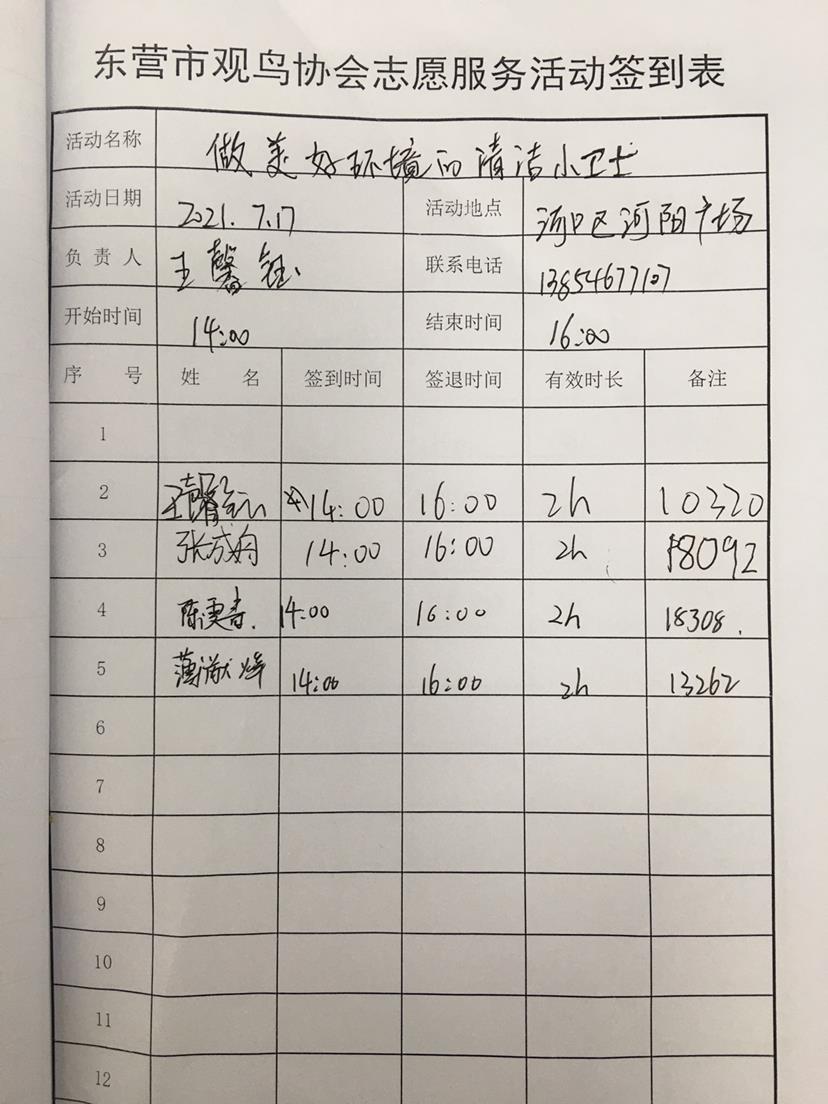 东营市观鸟协会志愿服务活动签到表
活动名称 做美好环境的清洁小卫士
活动日期 2021.7.17 活动地点 河口区河阳广场
负责人 王馨钰 联系电话 13854677107
开始时间 14:00 结束时间 16:00
序号 姓名 签到时间 签退时间 有效时长 备注
1
2 王馨钰 14:00 16:00 2h 10320
3 14:00 16:00 2h 18092
4 14:00 16:00 2h 18308.
5 14:00 16:00 2h 13262
6
7
8
9
10
11
12